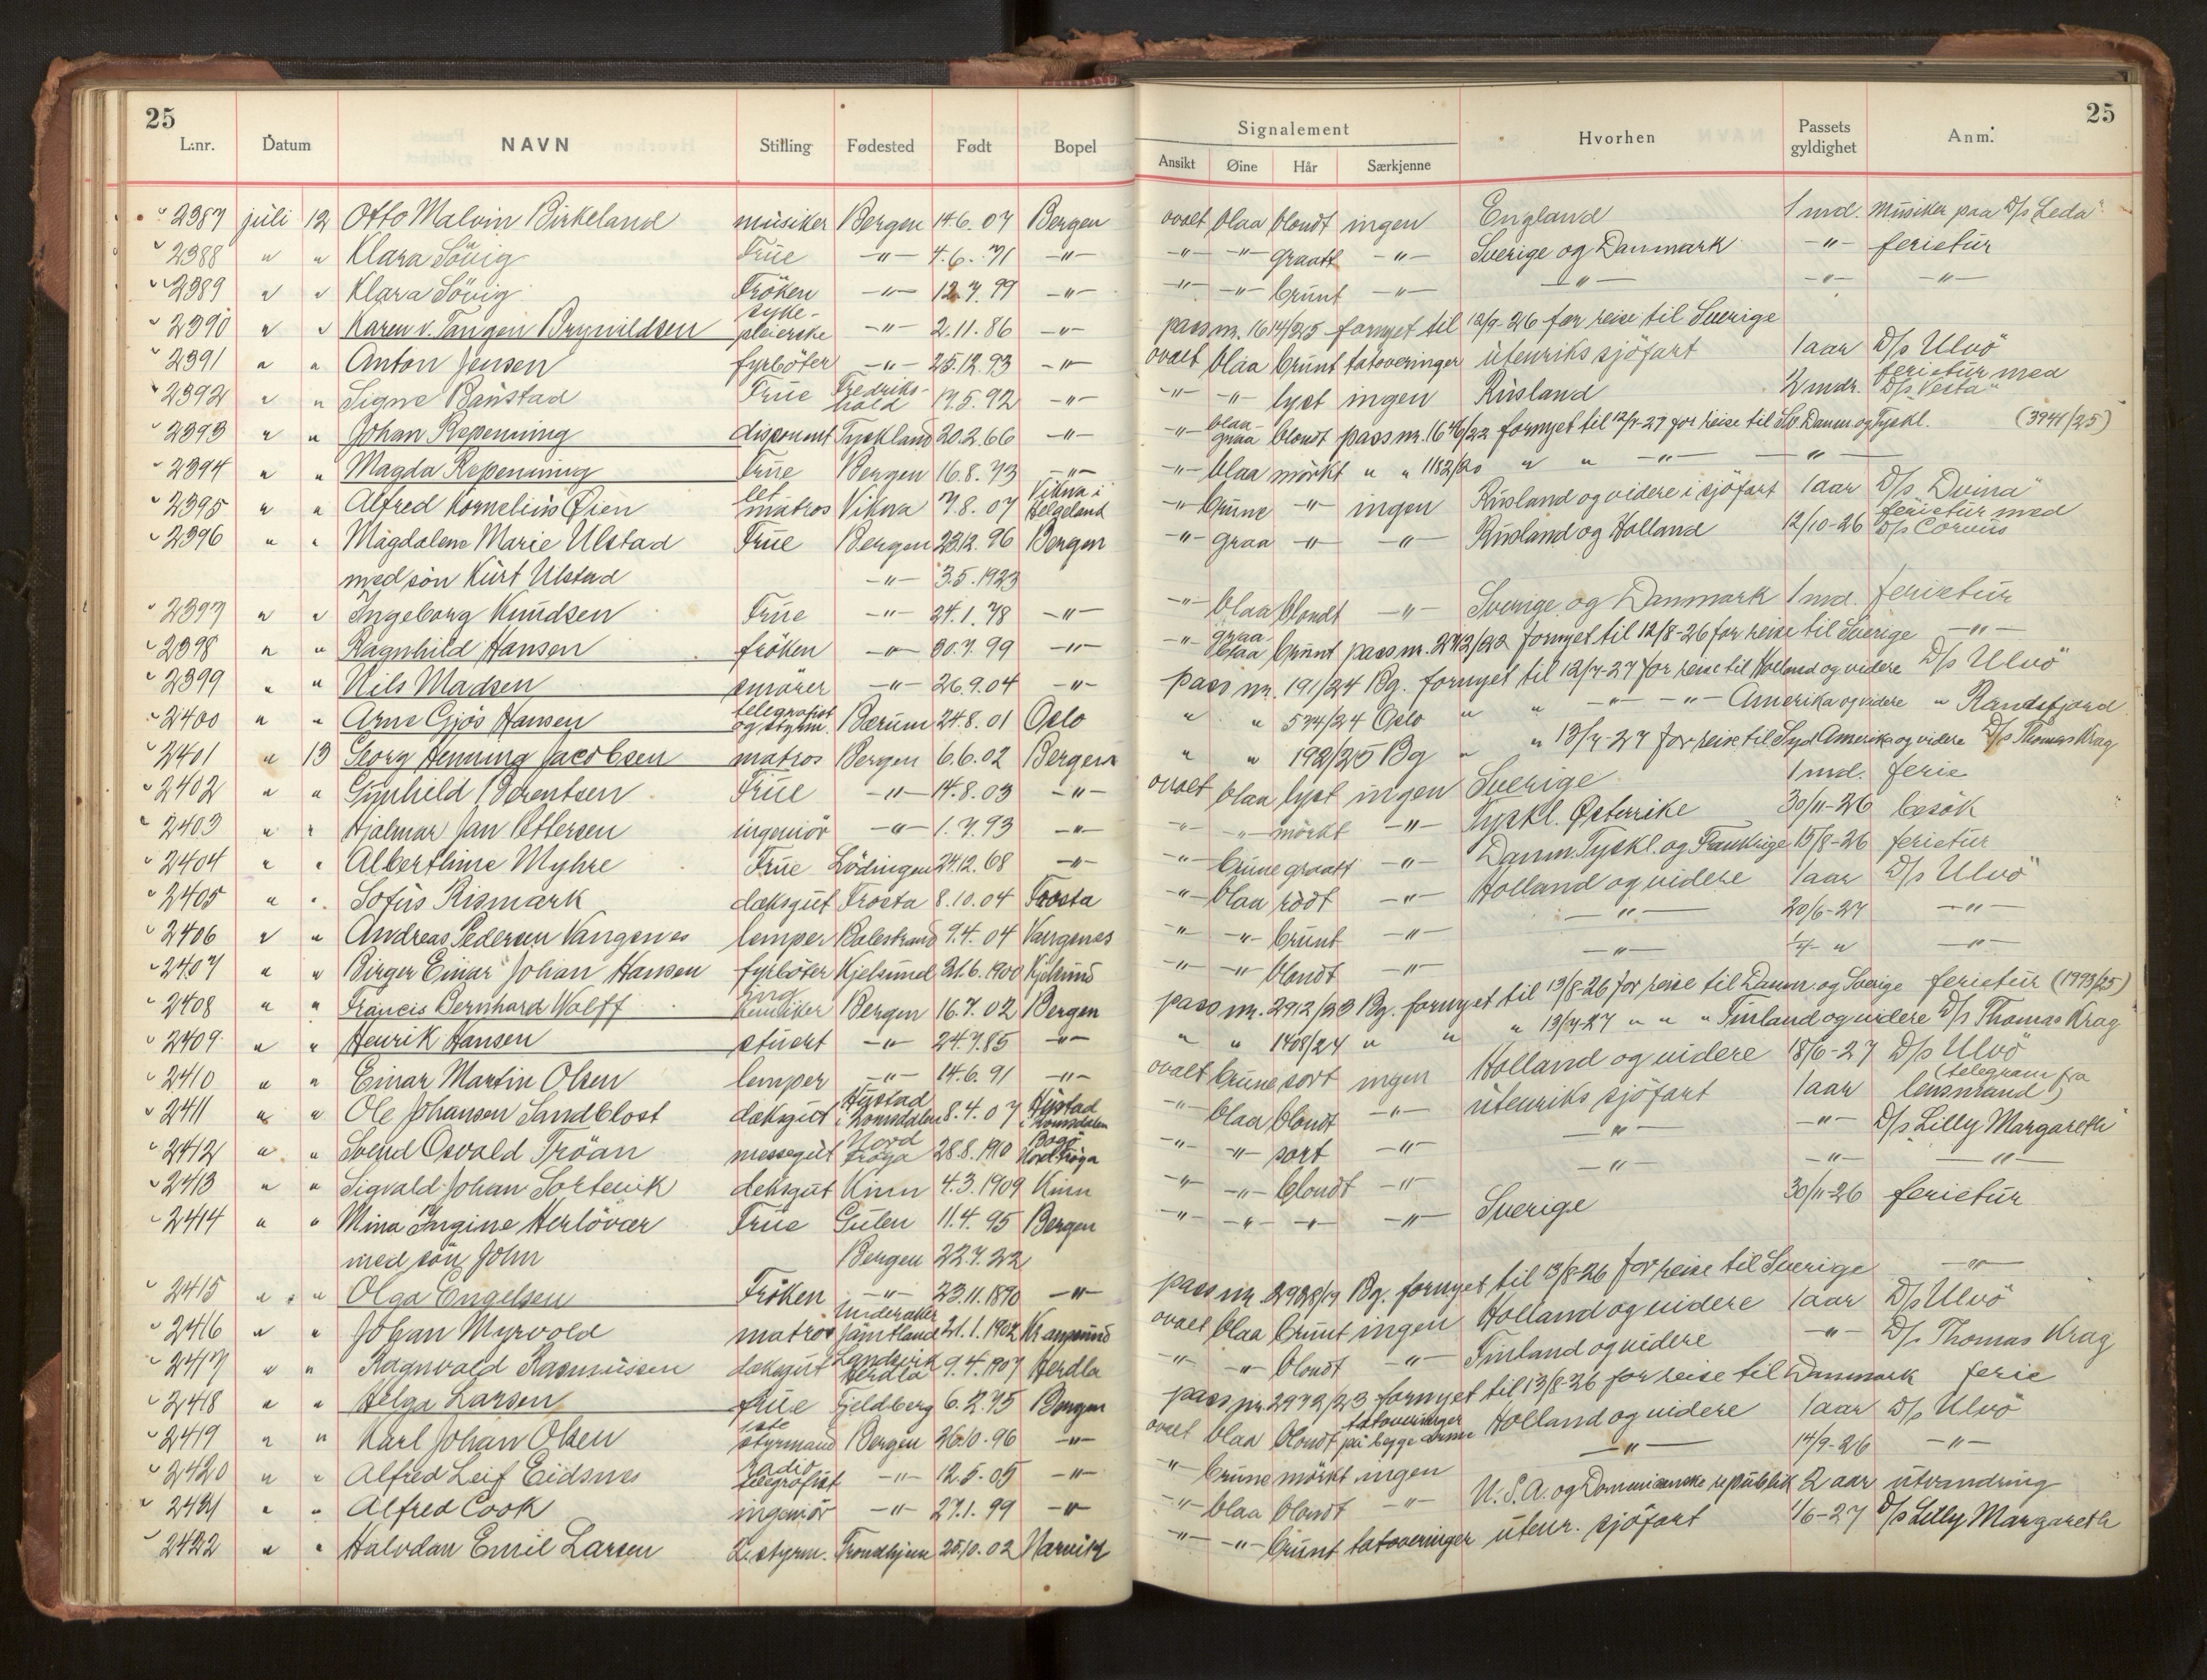 25
L:nr. Datum NAVN Stilling Fødested Født Bopel
2387 juli 12 Otto Malvin Birkeland musiker Bergen 14.6.07 Bergen
2388 " " Klara Sövig Frue -"- 4.6.71 -"-
2389 " " Klara Sövig Fröken -"- 12.7.99 -"-
2390 " " Karen v. Tangen Brynildsen sykepleierske -"- 2.11.86 -"-
2391 " " Anton Jensen fyrböter -"- 25.12.93 -"-
2392 " " Signe Baustad Frue Fredrikshald 17.5.92 -"-
2393 " " Johan Repenning disponent Tyskland 20.2.66 -"-
2394 " " Magda Repenning Frue Bergen 16.8.73 -"-
2395 " " Alfred Kornelius Øien let matros Vikna 7.8.07 Vikna i Helgeland
2396 " " Magdalene Marie Ulstad Frue Bergen 23.12.96 Bergen
med sön Kurt Ulstad -"- 3.5.1923
2397 " " Ingeborg Knudsen Frue -"- 24.1.78 -"-
2398 " " Ragnhild Hansen fröken -"- 30.7.99 -"-
2399 " " Nils Madsen smörer -"- 26.9.04 -"-
2400 " " Arne Gjös Hansen telegrafist og styrm. Bærum 24.8.01 Oslo
2401 " 13 Georg Henning Jacobsen matros Bergen 6.6.02 Bergen
2402 " " Gunhild Berentsen Frue -"- 14.8.03 -"-
2403 " " Hjalmar Jan Pettersen ingeniör -"- 1.7.93 -"-
2404 " " Alberthine Myhre Frue Lödingen 24.12.68 -"-
2405 " " Sofus Rismark dæksgut Frosta 8.10.04 Frosta
2406 " " Andreas Pedersen Vangsnes lemper Balestrand 9.4.04 Vangsnes
2407 " " Birger Einar Johan Hansen fyrböter Kjelsund 21.6.1900 Kjelsund
2408 " " Francis Bernhard Wolff ing. kemiker Bergen 16.7.02 Bergen
2409 " " Henrik Hansen stuert -"- 24.7.85 -"-
2410 " " Einar Martin Olsen lemper -"- 14.6.91 -"-
2411 " " Ole Johansen Sandblost dæksgut Hustad i Romsdalen 8.4.07 Hustad i Romsdalen
2412 " " Svend Osvald Tröan messegut Nord Fröya 28.8.1910 Bogö Nord Fröya
2413 " " Sigvald Johan Sortevik deksgut Kinn 4.3.1909 Kinn
2414 " " Mina Ingine Herlövær Frue Gulen 11.4.95 Bergen
med sön John Bergen 22.7.22
2415 " " Olga Engelsen Fröken -"- 23.11.1890 -"-
2416 " " Johan Myrvold matros Underåker Jämtland 21.1.1902 Kr.ansund
2417 " " Ragnvald Rasmussen dæksgut Landsvik Herdla 9.4.1907 Herdla
2418 " " Helga Larsen frue Fjeldberg 6.2.75 Bergen
2419 " " Karl Johan Olsen 1ste styrmand Bergen 26.10.96 -"-
2420 " " Alfred Leif Eidsnes radio telegrafist -"- 12.5.05 -"-
2421 " " Alfred Cook ingeniör -"- 27.1.99 -"-
2422 " " Halvdan Emil Larsen 2. styrm. Trondhjem 25.10.02 Narvik
25
Signalement Hvorhen Passets gyldighet Anm.
Ansikt Øine Hår Særkjenne
ovalt blaa blondt ingen England 1 md. Musiker paa D/s "Leda"
-"- -"- graatt -"- Sverige og Danmark -"- ferietur
-"- -"- brunt -"- -"- -"- -"-
pass nr. 1614/25 fornyet til 12/9-26 for reise til Sverige
ovalt blaa brunt tatoveringer utenriks sjöfart 1 aar D/s "Ulvö"
-"- -"- lyst ingen Rusland 2 mdr. ferietur med D/s "Vesta"
-"- blaa-graa blondt pass nr. 1646/22 fornyet til 12/7-27 for reise til Sv. Danm. og Tyskl. (3941/25)
-"- blaa mörkt " " 1182/20 " " -"- -"-
-"- brune -"- ingen Rusland og videre i sjöfart 1 aar D/s "Dvina"
-"- graa -"- -"- Rusland og Holland 12/10-26 ferietur med D/s Corvus
-"- blaa blondt -"- Sverige og Danmark 1 md. ferietur
-"- graa-blaa brunt pass nr. 2712/22 fornyet til 12/8-26 for reise til Sverige -"-
pass nr. 191/24 Bg. fornyet til 12/7-27 for reise til Holland og videre D/s "Ulvö"
" " 574/24 Oslo " " -"- -"- Amerika og videre " Randsfjord
" " 192/25 Bg " " 13/7-27 for reise til Syd Amerika og videre D/s Thomas Krag
ovalt blaa lyst ingen Sverige 1 md. ferie
-"- -"- mörkt -"- Tyskl. Østerrike 30/11-26 besök
-"- brune graatt -"- Danm. Tyskl. og Frankrige 15/8-26 ferietur
-"- blaa rödt -"- Holland og videre 1 aar D/s "Ulvö"
-"- -"- brunt -"- -"- 20/6-27 -"-
-"- -"- blondt -"- -"- 1/7 " -"-
pass nr. 2912/23 Bg. fornyet til 13/8-26 for reise til Danm. og Sverige ferietur (1993/25)
" " 1408/24 " " " 13/7-27 " " " Finland og videre D/s Thomas Krag
ovalt brune sort ingen Holland og videre 18/6-27 D/s "Ulvö"
-"- blaa blondt -"- utenriks sjöfart 1 aar (telegram fra lensmand)
-"- -"- sort -"- -"- -"- D/s "Lilly Margareth"
-"- -"- blondt -"- -"- -"- -"-
-"- -"- -"- -"- Sverige 30/11-26 ferietur
pass nr. 2928/19 Bg. fornyet til 13/8-26 for reise til Sverige -"-
ovalt blaa brunt ingen Holland og videre 1 aar D/s Ulvö
-"- -"- blondt -"- Finland og videre -"- D/s Thomas Krag
pass nr. 2972/23 fornyet til 13/8-26 for reise til Danmark ferie
ovalt blaa blondt tatoveringer på begge arme Holland og videre 1 aar D/s Ulvö
-"- brune mörkt ingen -"- 14/9-26 -"-
-"- blaa blondt -"- U.S.A. og Dominicanske republik 2 aar utvandring
-"- -"- brunt tatoveringer utenr. sjöfart 1/6-27 D/s Lilly Margareth